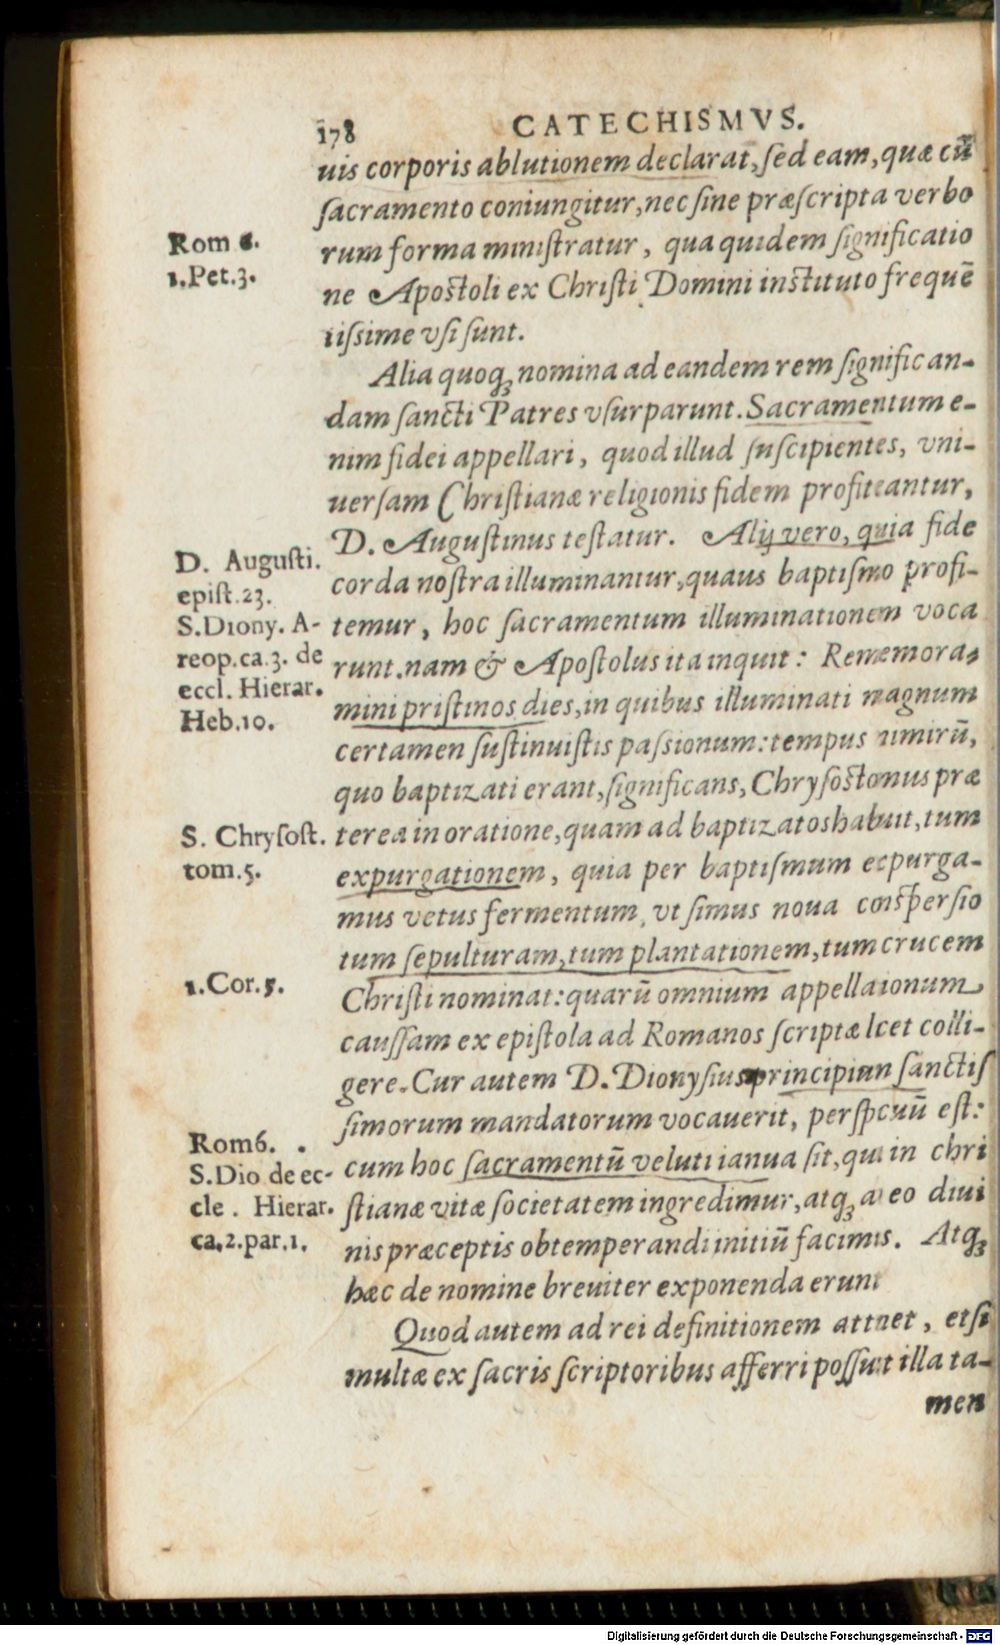 178 CATECHISMVS.
uis corporis ablutionem declarat, sed eam, quæ cũ
sacramento coniungitur, nec sine præscripta verbo
rum forma ministratur, qua quidem significatio
ne Apostoli ex Christi Domini instituto frequẽ
tissime vsi sunt.
Alia quoq; nomina ad eandem rem significan-
dam sancti Patres vsurparunt. Sacramentum e-
nim fidei appellari, quod illud suscipientes, vni-
uersam Christianæ religionis fidem profiteantur,
D. Augustinus testatur. Alij vero, quia fide
corda nostra illuminantur, quaus baptismo profi-
temur, hoc sacramentum illuminationem voca
runt. nam & Apostolus ita inquit: Rememora-
mini pristinos dies, in quibus illuminati magnum
certamen sustinuistis passionum: tempus nimirũ,
quo baptizati erant, significans, Chrysostomus præ
terea in oratione, quam ad baptizatos habuit, tum
expurgationem, quia per baptismum expurga-
mus vetus fermentum, vt simus noua conspersio
tum sepulturam, tum plantationem, tum crucem
Christi nominat: quarũ omnium appellationum
caussam ex epistola ad Romanos scriptæ licet colli-
gere. Cur autem D. Dionysius principium sanctis
simorum mandatorum vocauerit, perspicuũ est:
cum hoc sacramentũ veluti ianua sit, qua in chri
stianæ vitæ societatem ingredimur, atq; ab eo diui
nis præceptis obtemperandi initiũ facimus. Atq;
hæc de nomine breuiter exponenda erunt
Quod autem ad rei definitionem attinet, etsi
multæ ex sacris scriptoribus afferri possunt illa ta-
men
Rom 6.
1.Pet.3.
D. Augusti.
epist.23.
S.Diony. A-
reop.ca.3. de
eccl. Hierar.
Heb.10.
S. Chrysost.
tom.5.
1.Cor.5.
Rom6.
S.Dio de ec-
cle. Hierar.
ca.2.par.1.
Digitalisierung gefördert durch die Deutsche Forschungsgemeinschaft - DFG